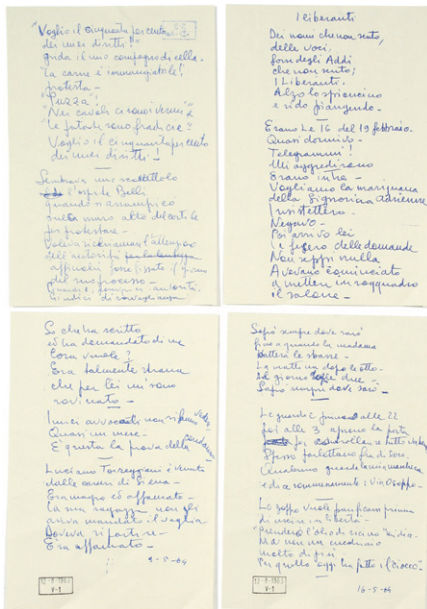 "Voglio il cinquanta per cento
dei miei diritti!"
grida il mio compagno di cella.
la carne è immangiabile!
protesta –
"Puzza"!
"Nei cavoli ci sono i vermi" e
le patate sono fradicie?
Voglio il cinquanta per cento
dei miei diritti –
Sembrava uno scoiattolo
l'ospite Belli
quando s'arrampicò
sulla muro alto del cortile
per protestare –
Voleva richiamare l'attenzione
dell'autorità
affinché fosse fissato il giorno
del suo processo –
I liberanti
Dei nomi che non sento,
delle voci.
forse degli Addi
che non sento;
I Liberanti.
Alzo lo spioncino
e rido piangendo –
Erano le 16 del 19 febbraio.
Quasi dormivo –
Telegrammi!
Mi aggredirono
Erano in tre –
Vogliamo la marijuana
della Signorina
Insistettero –
Negavo –
Poi arrivò lei
le fecero delle domande
Non seppi nulla
Avevano cominciato
a mettere in soqquadro
il salone –
So che ha scritto
ed ha domandato di me
Cosa vuole?
Era talmente strana
che per lei mi sono
rovinato –
I miei avvocati non si fanno vedere
Quasi un mese –
È questa la prova della condanna
Luciano Torreggiani è venuto
dalle carceri di Siena –
Era magro ed affamato –
La sua ragazza non gli
aveva mandato il vaglia
Doveva ripartire –
Era affamato –
9-5-64
12-8-1964
V-1
Saprò sempre dove sarò
fino a quando la madama
batterà le sbarre –
La mattina dopo le otto –
Il giorno alle due –
Saprò sempre dove sarò –
Le guardie prima alle 22
poi alle 3 aprono la porta
per controllare se tutto
Spesso parlottano fra di loro.
Qualcuno guarda la mia
e dice sommessamente: Via Osoppo –
Lo zoppo vuole purificarsi prima
di uscire in libertà –
"Prenderò l'olio di ricino" mi dice.
Ma non mi crederanno
molto di più
16-5-64
12-8-1964
V-1